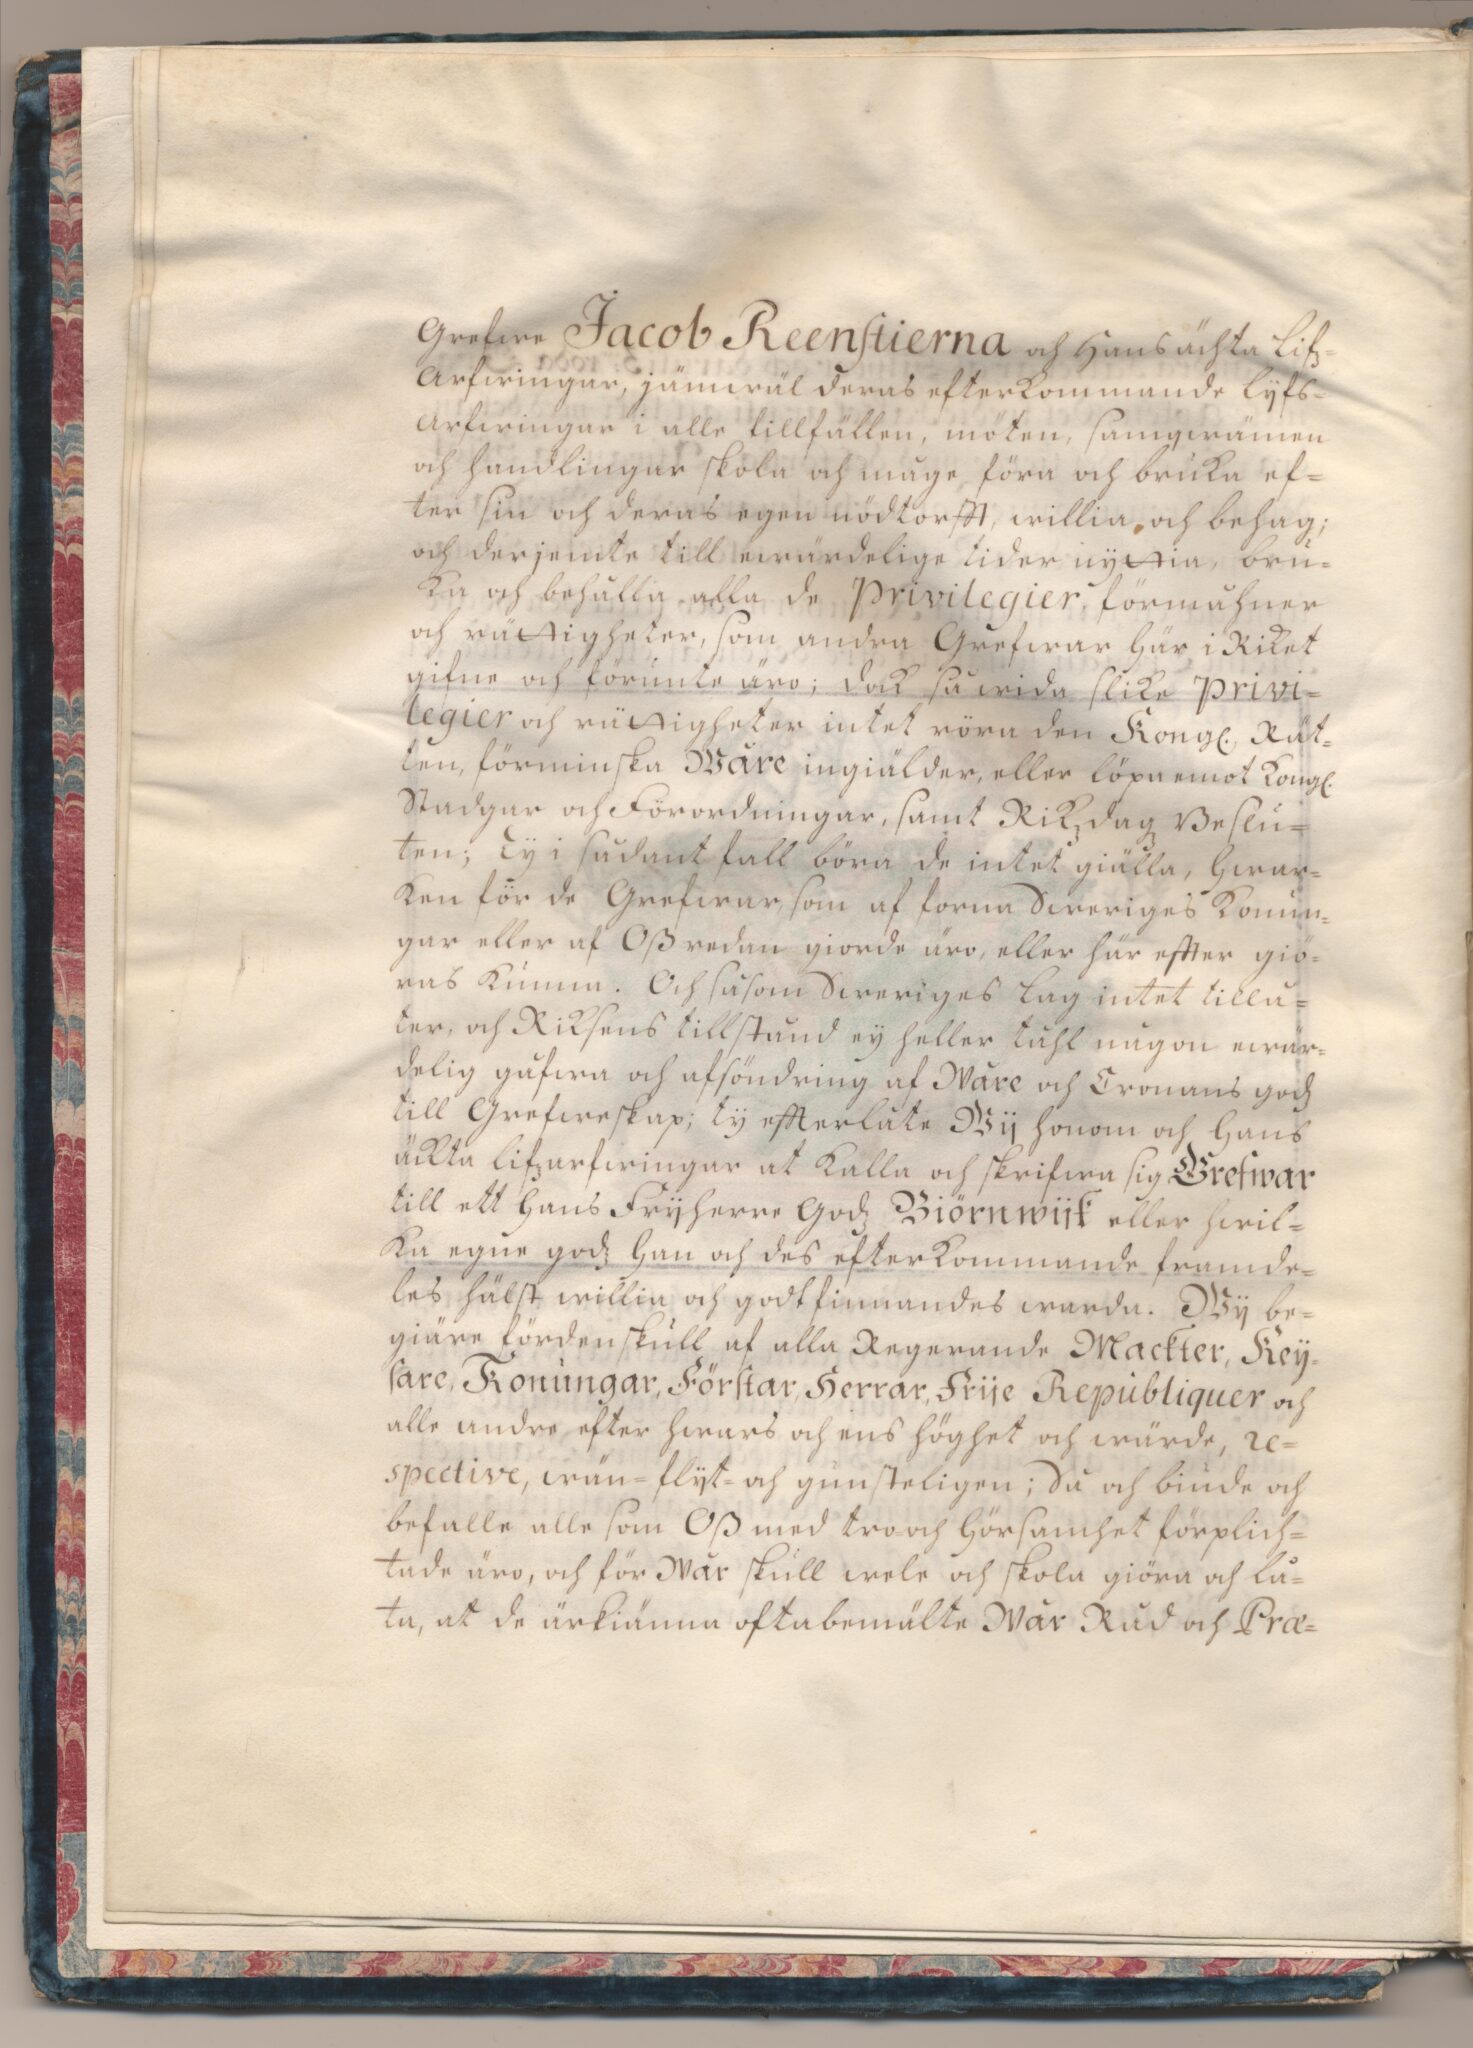 Grefwe Jacob Reenstierna och Hans ächta Lifz=
Arfwingar, jämwäl deras efterkommande Lyfs=
Arfwingar i alle tillfällen, möten, samqwämen
och handlingar skola och måge föra och bruka ef=
ter sin och deras egen nödtorfft, willia och behag;
och derjemte till ewärdelige tider nyttia, bru=
ka och behålla alla de Privilegier, förmåhner
och rättigheter, som andra Grefwar Här i Riket
gifne och förunte äro; dock så wida slike Privi=
legier och rättigheter intet röra den Kongl. Rät=
ten, förminska Wåre ingiälder, eller löpa emot Kongl.
Stadgar och Förordningar, samt Rikzdagz Beslu=
ten; Ty i sådant fall böra de intet giälla, Hwar=
ken för de Grefwar, som af forna Sweriges Konun=
gar eller af Oß redan giorde äro, eller här effter giö=
ras kunna. Och såsom Sweriges Lag intet tillå=
ter, och Riksens tillstånd ey heller tåhl någon ewär=
delig gåfwa och afsöndring af Wåre och Cronans godz
till Grefweskap; ty effterlåte Wij honom och Hans
äckta lifzarfwingar at kalla och skrifwa sig Grefwar
till ett Hans Fryherre Godz Biörnwijk eller hwil=
ka egne godz Han och des efterkommande framde=
les hälst willia och godtfinnandes warda. Wij be=
giäre fördenskull af alla Regerande Mackter, Key=
sare, Konungar, Förstar, Herrar, Frije Republiquer och
alle andre efter hwars och ens höghet och wärde, re=
spective, wän= flyt= och gunsteligen; Så och biude och
befalle alle som Oß med tro och Hörsamhet förplich=
tade äro, och för Wår skull wele och skola giöra och lå=
ta, at de ärkiänna oftabemälte Wår Råd och Præ=